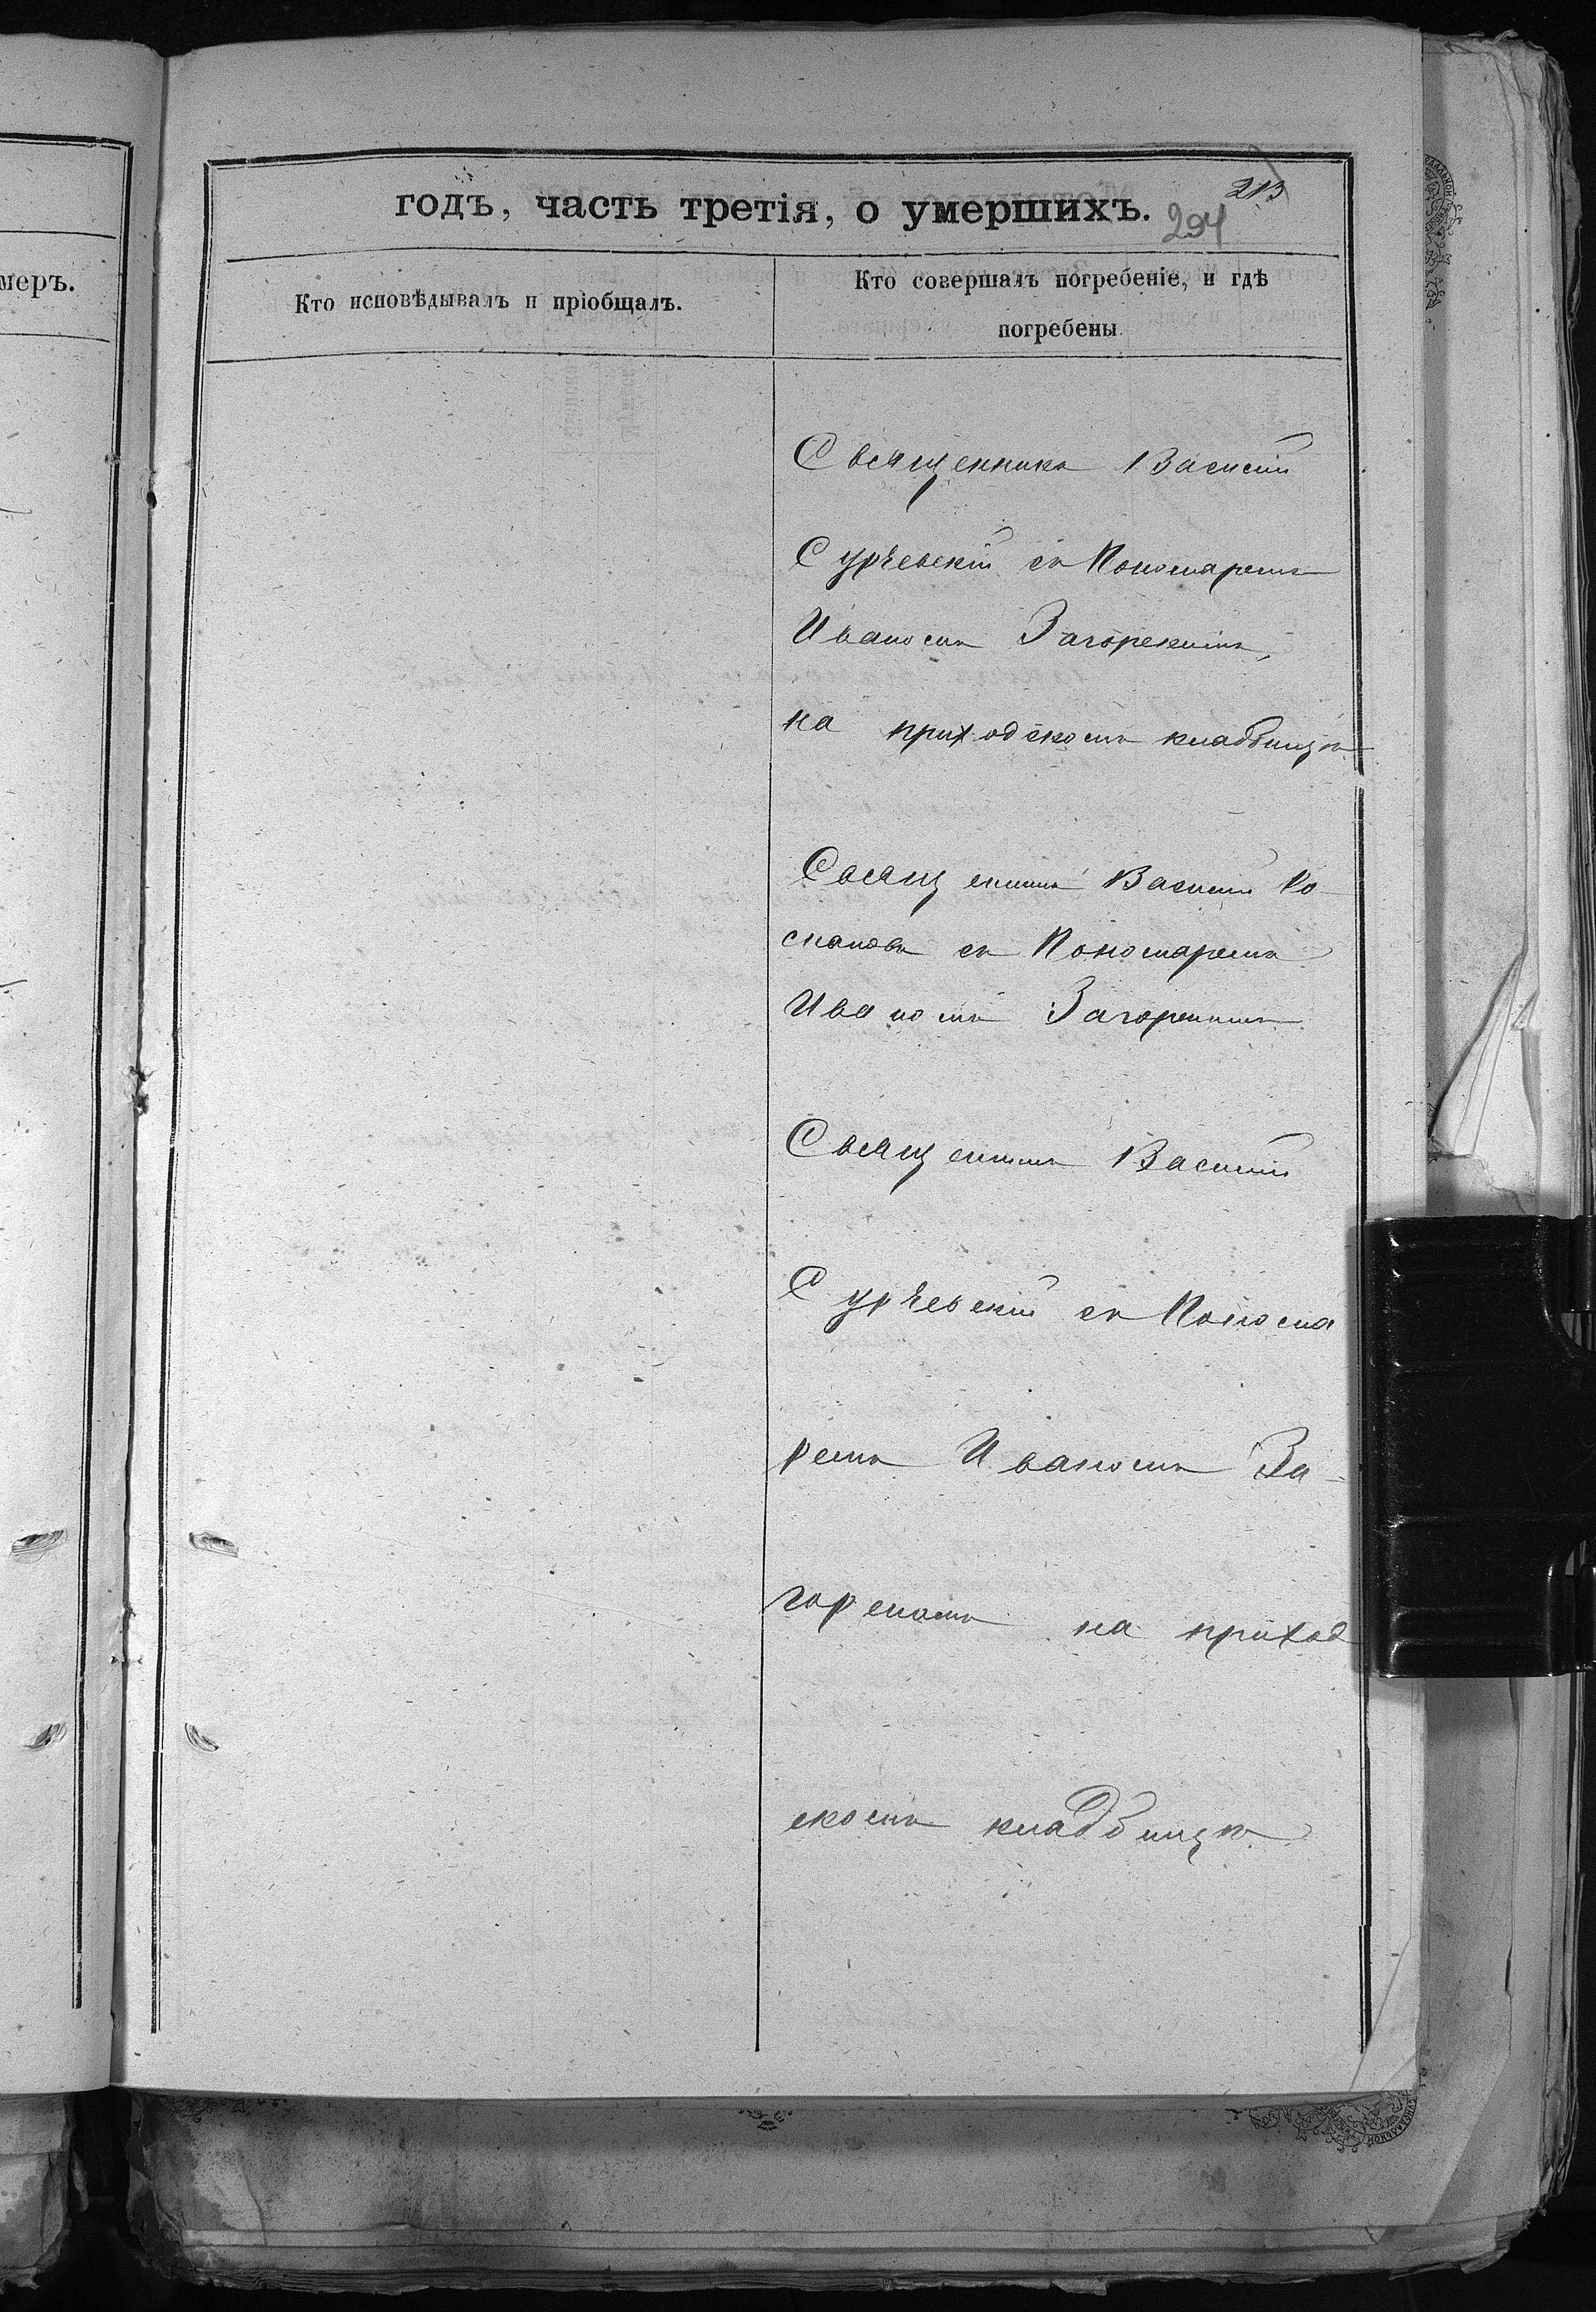 меръ.
213
годъ, часть третія, о умершихъ.
294
Кто исповѣдывалъ и пріобщалъ.
Кто совершалъ погребеніе, и гдѣ
погребены
Священникъ Василій
Сурчевскій съ Пономаремъ
Иваномъ Загорскимъ,
на приходскомъ кладбищѣ
Священникъ Василій Ро-
мановъ съ Пономаремъ
Иваномъ Загорскимъ
Священникъ Василій
Сурчевскій съ Понома
ремъ Иваномъ За-
горскимъ на приход
скомъ кладбищѣ.